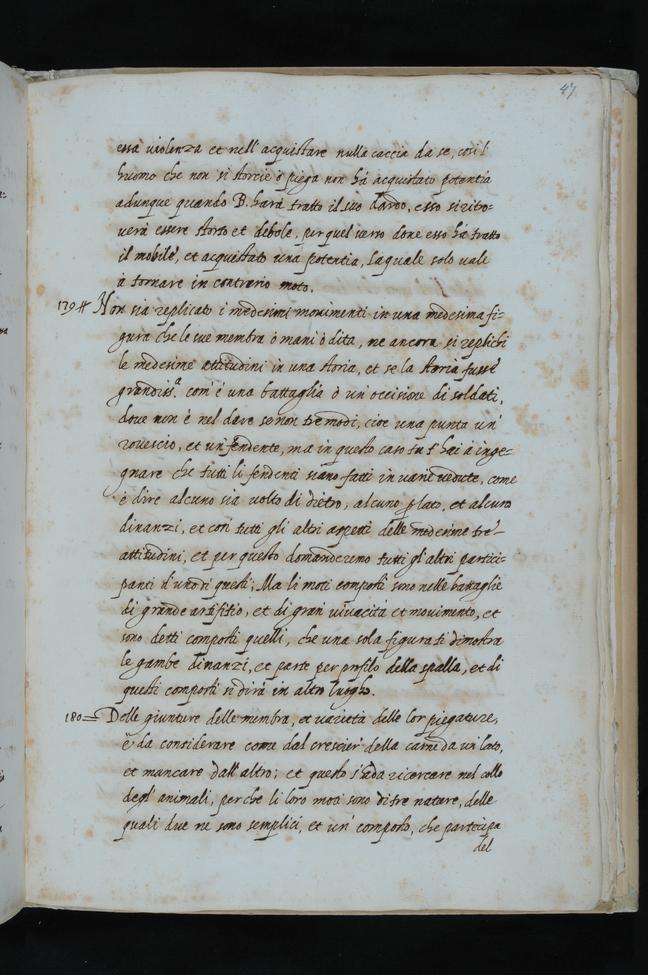 47
essa violenza et nell' acquistare nulla caccia da se, così l'
huomo che non si storcie ò piega non hà acquistato potentia
adunque quando B. harà tratto il suo dardo, esso si ritro-
verà essere storto et debole, per quel verso dove esso hà tratto
il mobile, et acquistato una potentia, la quale solo vale
à tornare in contrario moto.
179 # Non sia replicato i medesimi movimenti in una medesima fi-
gura che le sue membra ò mani ò dita, ne ancora si replichi
le medesime attitudini in una storia, et se la storia fusse
grandiss.ª com' è una battaglia ò un' occisione di soldati,
dove non è nel dare se non tre modi, cioe una punta un'
rovescio, et un fendente, ma in questo caso tu t' hai à inge-
gnare che tutti li fendenti siano fatti in varie vedute, come
è dire alcuno sia volto di dietro, alcuno p lato, et alcuno
dinanzi, et così tutti gli altri aspetti delle medesime tre
attitudini, et per questo domanderemo tutti gl' altri partici-
panti d' uno di questi; Ma li moti composti sono nelle battaglie
di grande artifitio, et di gran vivacità et movimento, et
sono detti composti quelli, che una sola figura ti dimostra
le gambe dinanzi, et parte per profilo della spalla, et di
questi composti si dirà in altro luogho.
180 = Delle giunture delle membra, et varietà delle lor piegature,
è da considerare come dal crescier' della carne da un' lato,
et mancare dall' altro; et questo s' hà da ricercare nel collo
degl' animali, perche li loro moti sono di tre nature, delle
quali due ne sono semplici, et un' composto, che partecipa
del